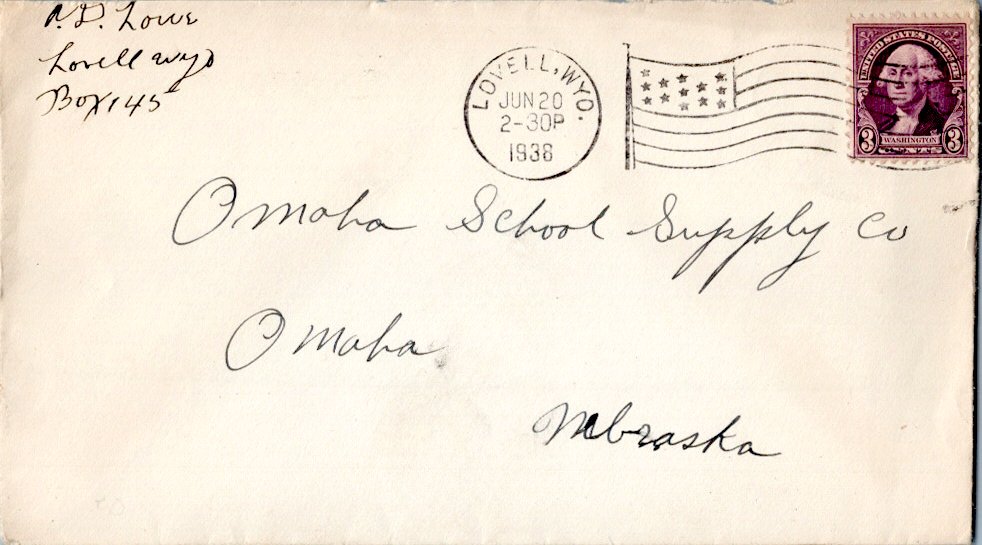 A. D. Lowe
Lovell Wyo
Box 145
LOVELL, WYO.
JUN 20
2-30P
1938
UNITED STATES POSTAGE
3 WASHINGTON 3
Omaha School Supply Co
Omaha
Nebraska